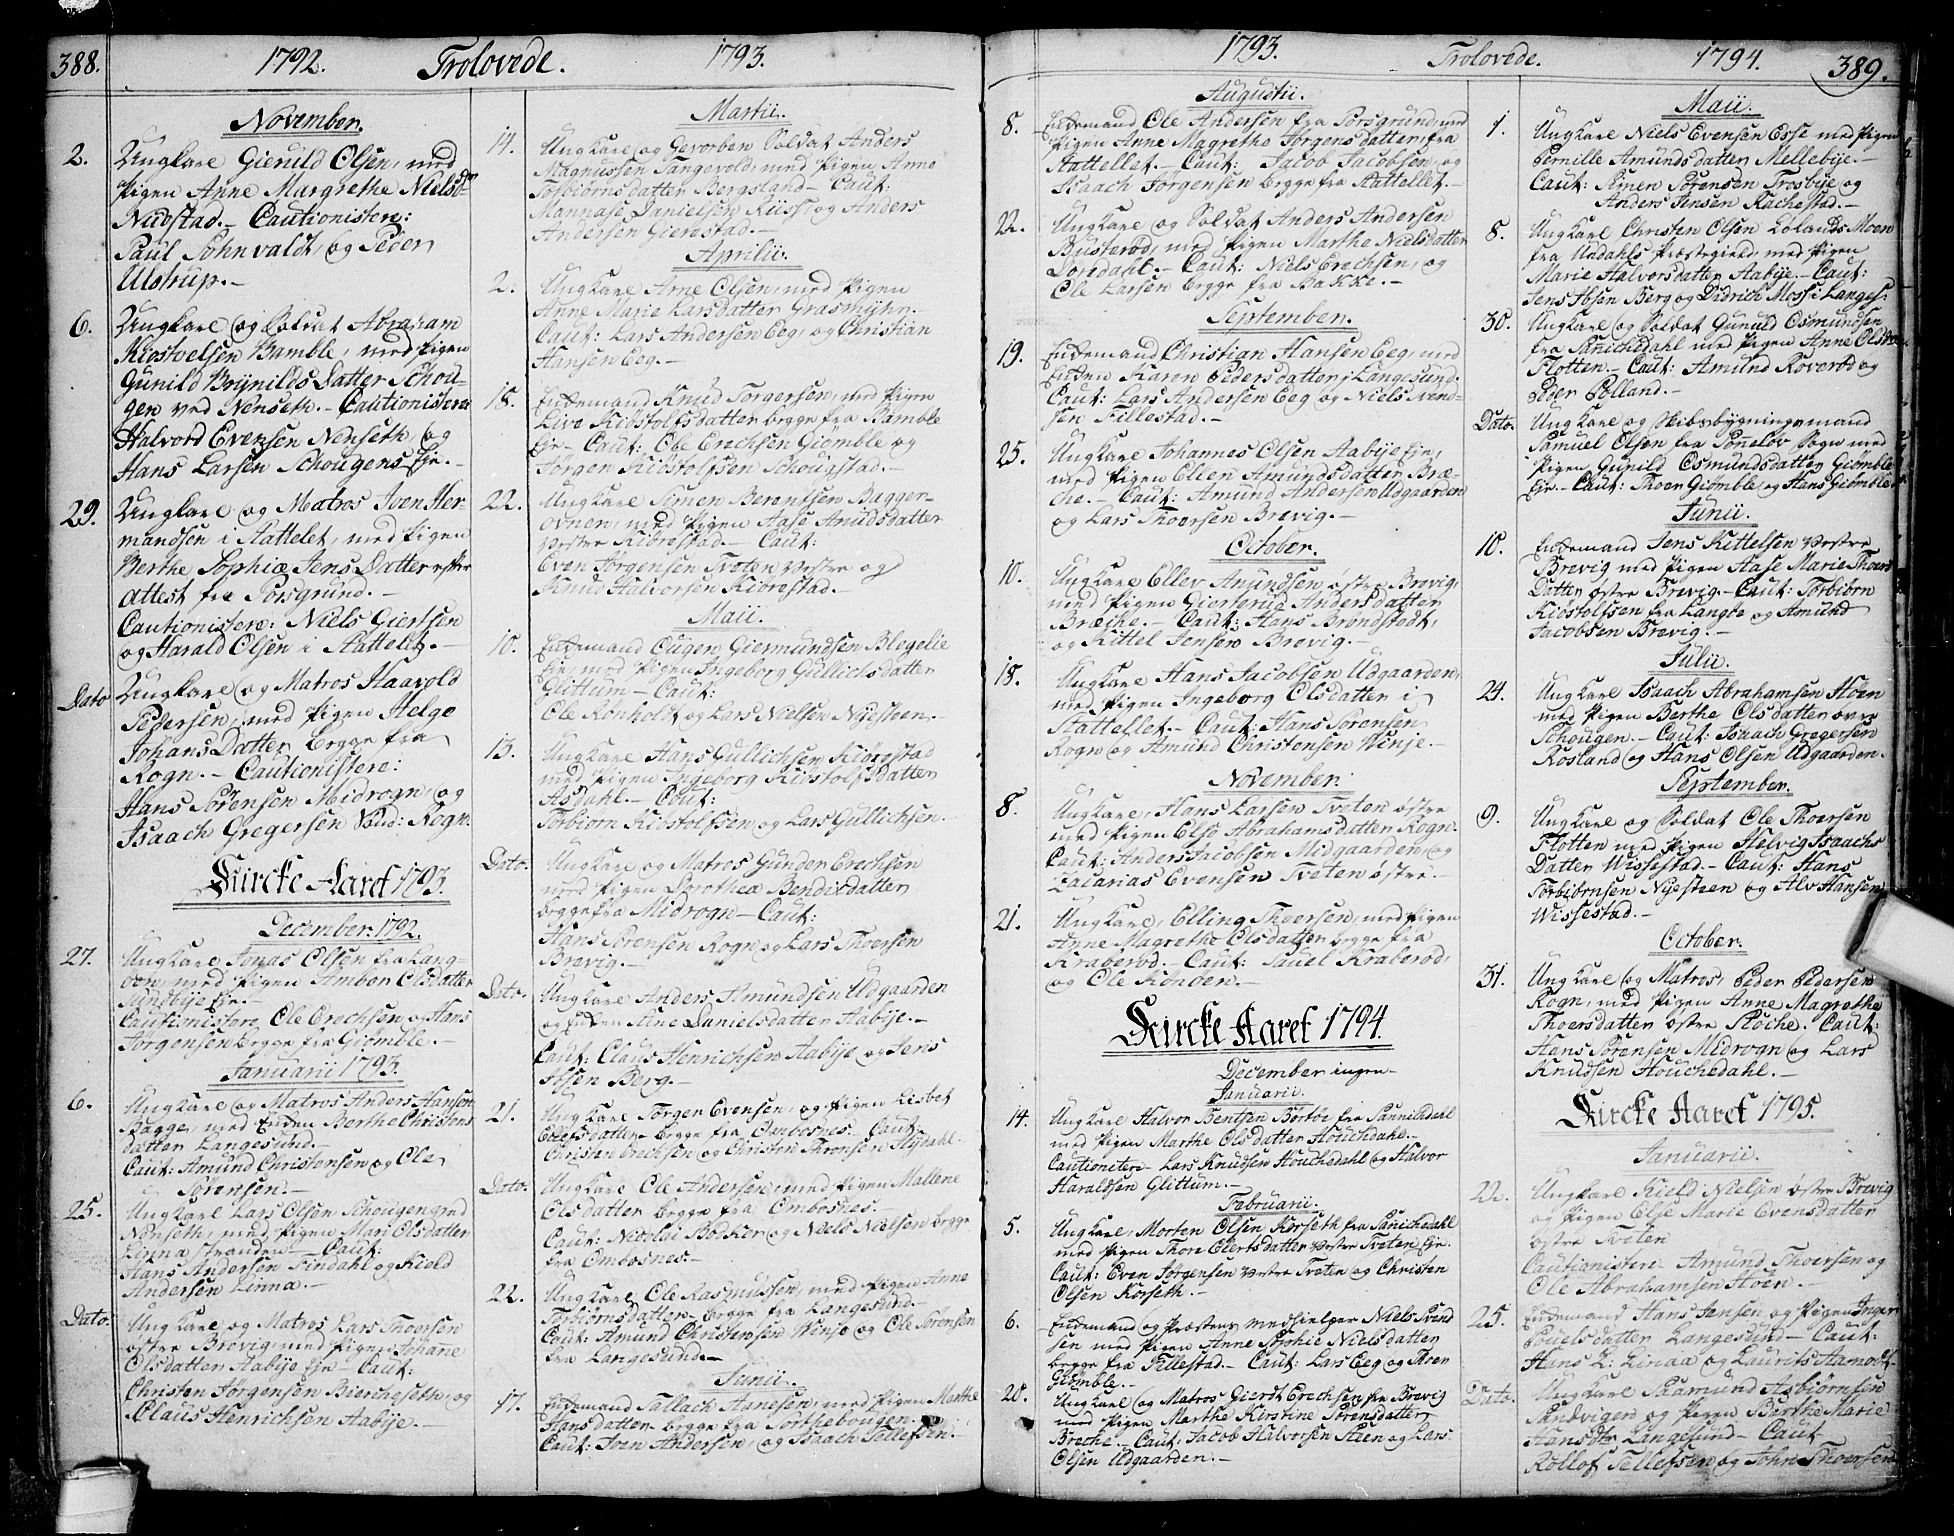 388. 1792. Trolovede. 1793.
November.
2. Ungkarl Gieruld Olsen, med
Pigen Anne Margrethe Nielsdtr
Nudstad. – Cautionistere:
Paul Sohnvaldt, og Peder
Ulstrup. –
6. Ungkarl og Soldat Abraham
Kiostvelsen Bamble, med Pigen
Gunild Brynilds Datter Schou-
gen ved Nenseth. – Cautionistere
Halvord Evensen Nenseth, og
Hans Larsen Schougens Eje. –
29. Ungkarl og Matros Iven Her-
mandsen i Stattelet, med Pigen
Berthe Sophie Jens Datter efter
attest fra Porsgrund. –
Cautionistere: Niels Giertsen
og Harald Olsen i Stattelet. –
Dato Ungkarl og Matros Haavold
Pedersen, med Pigen Helge
Johans Datter begge fra
Rogn. – Cautionistere:
Hans Sörensen Midrogn, og
Isaach Gregersen Rogn.
Kircke Aaret 1793.
December. 1792.
27. Ungkarl Jonas Olsen fra Lang-
öen, med Pigen Ambor Olsdatter
Sundbye Eje. –
Cautionistere Ole Erechsen og Hans
Jörgensen begge fra Giömble. –
Januarii 1793.
6. Ungkarl og Matros Anders Hansen
Bagge, med Enken Berthe Christens
datter Langesund. –
Caut: Amund Christensen og Ole
Sörensen. –
25. Ungkarl Lars Olsen Schougen ved
Nenseth, med Pigen Mari Olsdatter
Linna stranden – Caut:
Hans Andersen Findahl og Kield
Andersen Linna. –
Dato. Ungkarl og Matros Lars Thoersen
östre Brevig, med Pigen Johane
Olsdatter Aabije Eje – Caut:
Christen Jörgensen Biercheseth, og
Claus Henrichsen Aabije. –
Martii.
14. Ungkarl og Gevorben Soldat Anders
Magnussen Tangevold, med Pigen Anne
Torbiörnsdatter Bergsland – Caut:
Mannase Danielsen Riis, og Anders
Andersen Gierestad. –
Aprilii.
2. Ungkarl Arne Olsen, med Pigen
Anne Marie Larsdatter Grasmyhr. –
Caut: Lars Andersen Eeg, og Christian
Hansen Eeg. –
18. Enkemand Knud Torgersen, med Pigen
Live Kiöstolfsdatter begge fra Bamble
Eje – Caut: Ole Erechsen Giömble og
Jörgen Kiöstolfsen Schougstad. –
22. Ungkarl Simen Berentsen Bagger-
ovnen, med Pigen Aase Amudsdatter
vestre Kiörestad. – Caut:
Even Jörgensen Tveten vestre og
Knud Halvorsen Kiörestad. –
Maii.
10. Enkemand Ougen Giermundsen Blegelie
Eje, med Pigen Ingeborg Gullichsdatter
Glittum – Caut:
Ole Ronholdt og Lars Nielsen Nyesteen. –
13. Ungkarl Hans Gullichsen Kiörestad
med Pigen Ingeborg Kiöstolfs Datter
Asdahl. – Caut:
Torbiorn Kiöstolfsen og Lars Gullichsen. –
Dato. Ungkarl og Matros Gunder Erechsen
med Pigen Dorothea Bendixdatter
begge fra Midrogn – Caut:
Hans Sörensen Rogn og Lars Thoersen
Brevig. –
Dato. Ungkarl Anders Amundsen Udgaarden
og Enken Stine Danielsdatter Aabije. –
Caut: Claus Henrichsen Aabije og Jens
Ibsen Berg. –
21. Ungkarl Torgen Evensen, og Pigen Lisbet
Ellefsdatter begge fra Ombosnes. Caut:
Christen Erechsen og Christen Thronsen Mydahl.
Dato. Ungkarl Ole Andersen, med Pigen Mallene
Olsdatter begge fra Ombosnes. –
Caut: Nicolai Bödker og Niels Nielsen begge
fra Ombosnes. –
22. Ungkarl Ole Rasmussen, med Pigen Anne
Torbiörnsdatter begge fra Langesund. –
Caut: Amund Christensen Winje og Ole Sörensen
fra Langesund. –
Junii.
17. Enkemand Tallach Aanesen, med Pigen Marthe
Hansdatter begge fra Torthebougen. –
Caut: Iven Andersen, og Isaach Tollefsen.
1793. Trolovede. 1794. 389.
Augustii.
8. Enkemand Ole Andersen fra Porsgrund med
Pigen Anne Magrethe Jörgensdatter fra
Stattellet. – Caut: Jacob Jacobsen, og
Isaach Jörgensen begge fra Stattellet. –
22. Ungkarl og Soldat Anders Andersen
Busteröd, med Pigen Marthe Nielsdatter
Doredahl. – Caut: Niels Erechsen, og
Ole Larsen begge fra Bakke. –
September.
19. Enkemand Christian Hansen Eeg, med
Enken Karen Pedersdatter i Langesund.
Caut: Lars Andersen Eeg og Niels Svend-
sen Tillestad. –
25. Ungkarl Johannes Olsen Aabije Eje,
med Pigen Ellen Amundsdatter Bræ-
che. – Caut: Amund Andersen Udgaarden
og Lars Thoersen Brevig. –
October.
10. Ungkarl Ellev Amundsen östre Brevig,
med Pigen Gierterud Andersdatter
Bræche. – Caut: Hans Bröndstedt,
og Kittel Jensen Brevig. –
18. Ungkarl Hans Jacobsen Udgaarden,
med Pigen Ingeborg Olsdatter i
Stattellet. – Caut: Hans Sörensen
Rogn og Amund Christensen Winje. –
November.
8. Ungkarl, Hans Larsen Tveten östre
med Pigen Else Abrahamsdatter Rogn.
Caut: Anders Jacobsen Midgaarden, og
Zacarias Evensen Tveten östre. –
21. Ungkarl, Elling Thoersen, med Pigen
Anne Magrethe Olsdatter begge fra
Kraberöd. – Caut: Sauel Kraberöd,
og Ole Könöen. –
Kircke Aaret 1794.
December ingen –
Januarii.
14. Ungkarl Halvor Bentsen Börtöe fra Sannikedahl
med Pigen Marthe Olsdatter Houchedahl. –
Cautionitere Lars Knudsen Houchedahl og Halvor
Haraldsen Glittum. –
Februarii.
5. Ungkarl, Morten Olsen Körseth fra Sanichedahl
med Pigen Thore Olertsdatter vestre Tveten Eje.
Caut: Even Jörgensen vestre Tveten og Christen
Olsen Körseth. –
6. Enkemand og Præstens Medhielper Niels Svend
sen med Pigen Anne Sophie Nielsdatter
begge fra Tillestad. – Caut: Lars Eeg og Thron
Giömble. –
20. Ungkarl og Matros Gierdt Erechsen fra Brevig
med Pigen Marthe Kirstine Sörensdatter
Breche. – Caut: Jacob Halvorsen Steen og Lars
Olsen Udgaarden. –
Maii.
1. Ungkarl Niels Evensen Esse med Pigen
Pernille Amundsdatter Mellebije. –
Caut: Simen Sörensen Trosbije og
Anders Jensen Rachestad. –
8. Ungkarl Christen Olsen Lölands Moen
fra Undahls Præstegield, med Pigen
Marie Halvorsdatter Aabije. – Caut:
Jens Ibsen Berg og Didrich Moss i Langes:
30. Ungkarl og Soldat Gunuld Osmundsen
fra Sanichedahl med Pigen Anne Olsdtr
Flotten. – Caut: Amund Roveröd og
Peder Polland. –
Dato. Ungkarl og Skibsbygningsmand
Samuel Olsen fra Sönelöv Sogn med
Pigen Gunild Osmundsdatter Giömble
Eje. – Caut: Thoer Giömble og Hans Giömble
Junii.
10. Enkemand Jens Kittelsen vestre
Brevig med Pigen Aase Marie Thoers
Datter östre Brevig. – Caut: Torbiörn
Kiöstolfsen fra Langöe og Amund
Jacobsen Brevig. –
Julii.
24. Ungkarl Isaach Abrahamsen Stöen
med Pigen Berthe Olsdatter övre
Schougen. – Caut: Isaach Gregersen
Rosland og Hans Olsen Udgaarden. –
September.
9. Ungkarl og Soldat Ole Thoersen
Flotten med Pigen Helvig Isaachs
Datter Wissestad. – Caut: Hans
Torbiörnsen Nyesteen og Alv Hansen
Wissestad. –
October.
31. Ungkarl og Matros, Peder Pedersen
Rogn, med Pigen Anne Magrethe
Thoersdatter östre Ploche. Caut:
Hans Sörensen Midrogn og Lars
Knudsen Houchedahl. –
Kircke Aaret 1795.
Januarii.
22. Ungkarl Kield Nielsen östre Brevig
og Pigen Else Marie Evensdatter
östre Tveten
Cautionistere Amund Thoersen og
Ole Abrahamsen Stöen. –
25. Enkemand Hans Jensen og Pigen Inger
Poulsdatter Langesund – Caut:
Hans L: Linaa og Laurits Aamodt –
Dato. Ungkarl Saamund Asbiörnsen
Sandvigen og Pigen Barthe Marie
Hansdtr Langesund – Caut
Rollof Tellefsen og John Thoersen